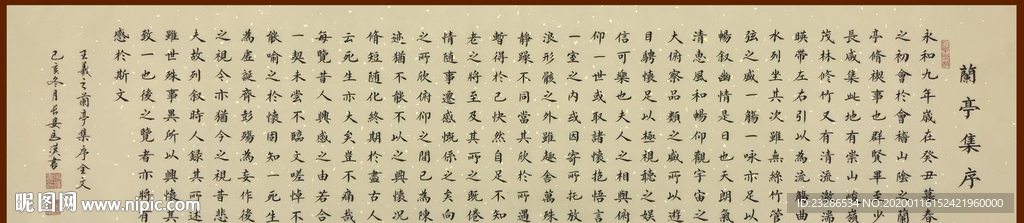 蘭亭集序
永和九年歲在癸丑暮春
之初會於會稽山陰之蘭
亭脩禊事也群賢畢至少
長咸集此地有崇山峻嶺
茂林修竹又有清流激湍
暎帶左右引以為流觴曲
水列坐其次雖無絲竹管
弦之盛一觴一詠亦足以
暢叙幽情是日也天朗氣
清惠風和暢仰觀宇宙之
大俯察品類之盛所以遊
目騁懷足以極視聽之娛
信可樂也夫人之相與俯
仰一世或取諸懷抱悟言
一室之內或因寄所託放
浪形骸之外雖趣舍萬殊
靜躁不同當其欣於所遇
暫得於己快然自足不知
老之將至及其所之既倦
情隨事遷感慨係之矣向
之所欣俯仰之間已為陳
迹猶不能不以之興懷況
脩短隨化終期於盡古人
云死生亦大矣豈不痛哉
每覽昔人興感之由若合
一契未嘗不臨文嗟悼不
能喻之於懷固知一死生
為虛誕齊彭殤為妄作後
之視今亦猶今之視昔悲
夫故列叙時人錄其所述
雖世殊事異所以興懷其
致一也後之覽者亦將有
感於斯文
王羲之蘭亭集序全文
己亥冬月
昵图网
www.nipic.com
ID:23286534 NO:20200116152421960000